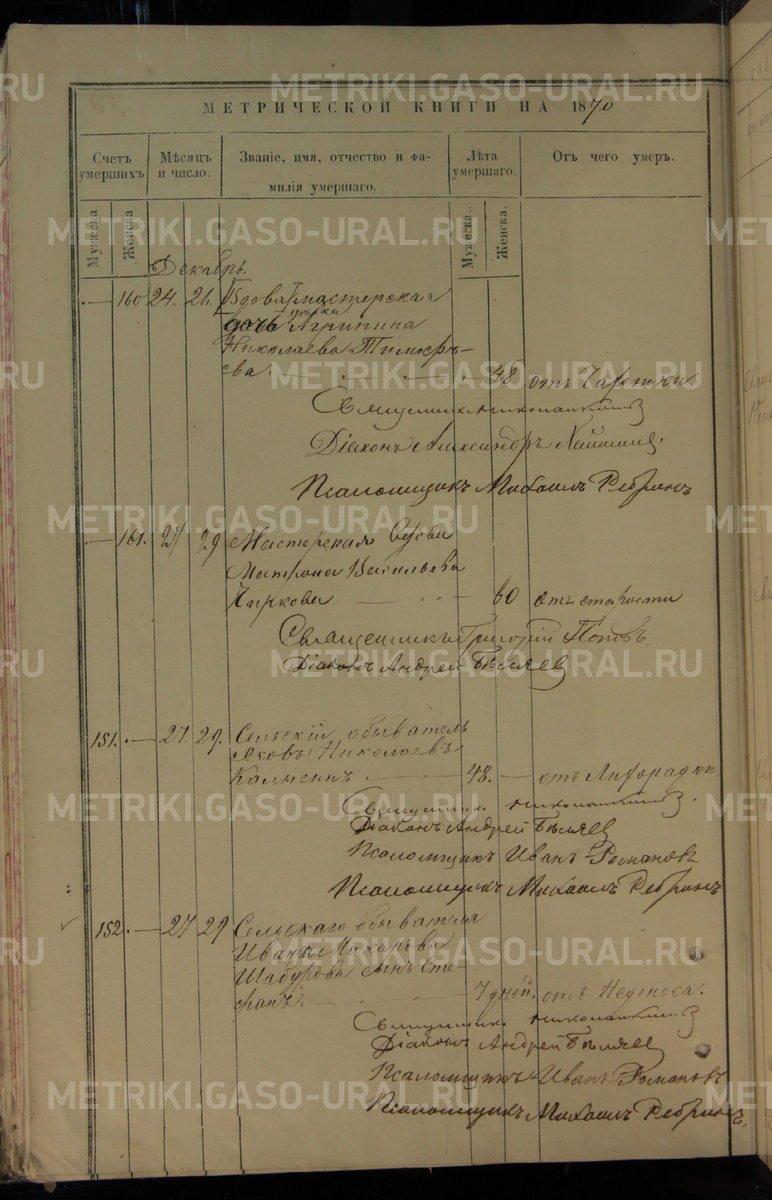 МЕТРИЧЕСКОЙ КНИГИ НА 1870
Счетъ умершихъ
Мѣсяцъ и число.
Званіе, имя, отчество и фамилія умершаго.
Лѣта умершаго.
Отъ чего умеръ.
Мужеска
Женска
Мужеска.
Женска.
Декабрь.
160 24. 26.
дочь Агрипина
Николаева Тимофѣ-
ева. 48 отъ Чахотки
Священникъ
Діаконъ Александръ
Псаломщикъ Михаилъ Ребринъ
161. 27 29 Мастерская вдова
Матрона Васильева
Чиркова 60 отъ старости
Священникъ Григорій Поповъ.
Діаконъ Андрей Бѣляев
151. 27. 29. Сельскій обыватель
Яковъ Николаевъ
48. отъ Лихорадки.
Священникъ
Діаконъ Андрей Бѣляев
Псаломщикъ Иванъ Романовъ
Псаломщикъ Михаилъ Ребринъ
152. 27 29 Сельскаго обывателя
Ивана Макарова
Шабурова сынъ Сте-
фанъ. 7 дней. отъ Недоноса.
Священникъ
Діаконъ Андрей Бѣляев
Псаломщикъ Иванъ Романовъ
Псаломщикъ Михаилъ Ребринъ.
METRIKI.GASO-URAL.RU